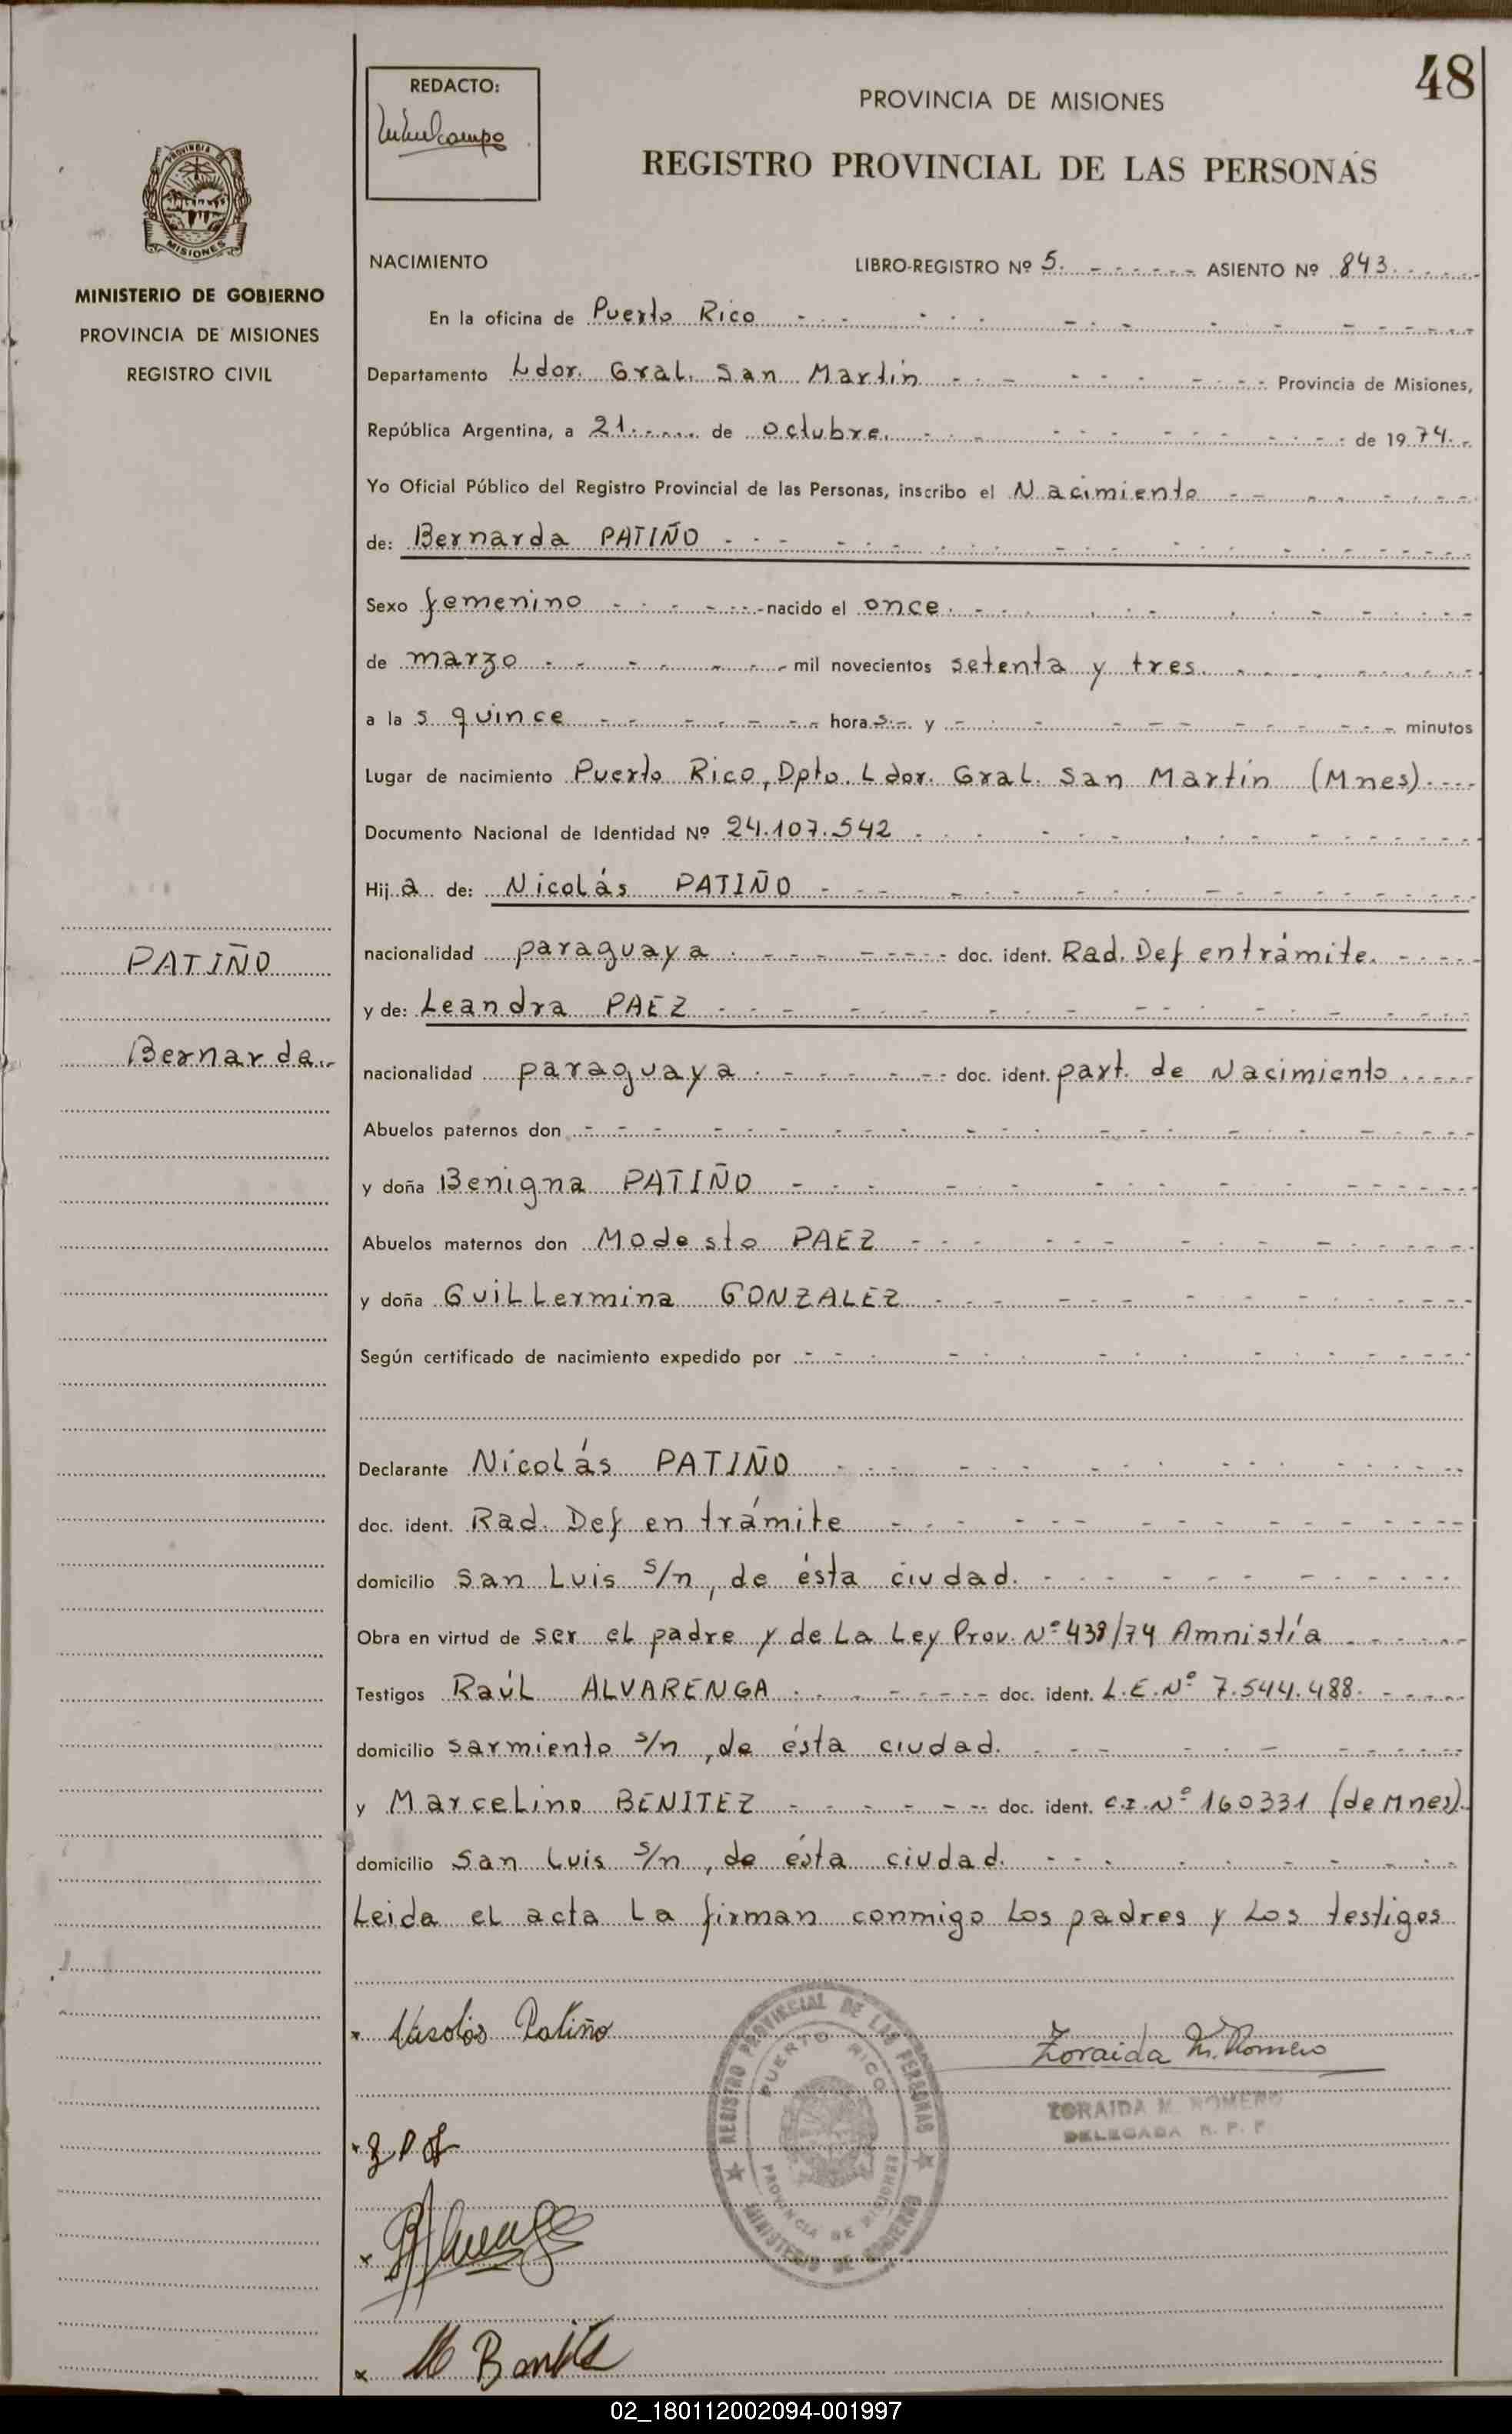 48
REDACTO:
PROVINCIA DE MISIONES
REGISTRO PROVINCIAL DE LAS PERSONAS
PROVINCIA DE
MISIONES
MINISTERIO DE GOBIERNO
PROVINCIA DE MISIONES
REGISTRO CIVIL
NACIMIENTO LIBRO-REGISTRO Nº 5. ASIENTO Nº 843.
En la oficina de Puerto Rico
Departamento Ldor. Gral. San Martín Provincia de Misiones,
República Argentina, a 21 de octubre. de 1974.
Yo Oficial Público del Registro Provincial de las Personas, inscribo el Nacimiento
de: Bernarda PATIÑO
Sexo femenino nacido el once.
de marzo mil novecientos setenta y tres.
a la s quince hora s. y minutos
Lugar de nacimiento Puerto Rico, Dpto. Ldor. Gral. San Martín (Mnes).
Documento Nacional de Identidad Nº 24.107.542
Hij a de: Nicolás PATIÑO
nacionalidad paraguaya doc. ident. Rad. Def en trámite.
y de: Leandra PAEZ
nacionalidad paraguaya doc. ident. part. de Nacimiento
Abuelos paternos don
y doña Benigna PATIÑO
Abuelos maternos don Modesto PAEZ
y doña Guillermina GONZALEZ
Según certificado de nacimiento expedido por
Declarante Nicolás PATIÑO
doc. ident. Rad. Def en trámite
domicilio San Luis s/n, de ésta ciudad.
Obra en virtud de ser el padre y de La Ley Prov. Nº 438/74 Amnistía
Testigos Raúl ALVARENGA doc. ident. L.E. Nº 7.544.488.
domicilio sarmiento s/n, de ésta ciudad.
y Marcelino BENITEZ doc. ident. C.I. Nº 160331 (de Mnes).
domicilio San Luis s/n, de ésta ciudad.
Leida el acta La firman conmigo Los padres y Los testigos
PATIÑO
Bernarda.
Nicolás Patiño
Zoraida M. Romero
ZORAIDA M. ROMERO
DELEGADA R. P. P
REGISTRO PROVINCIAL DE LAS PERSONAS
PUERTO RICO
PROVINCIA DE MISIONES
MINISTERIO DE GOBIERNO
02_180112002094-001997